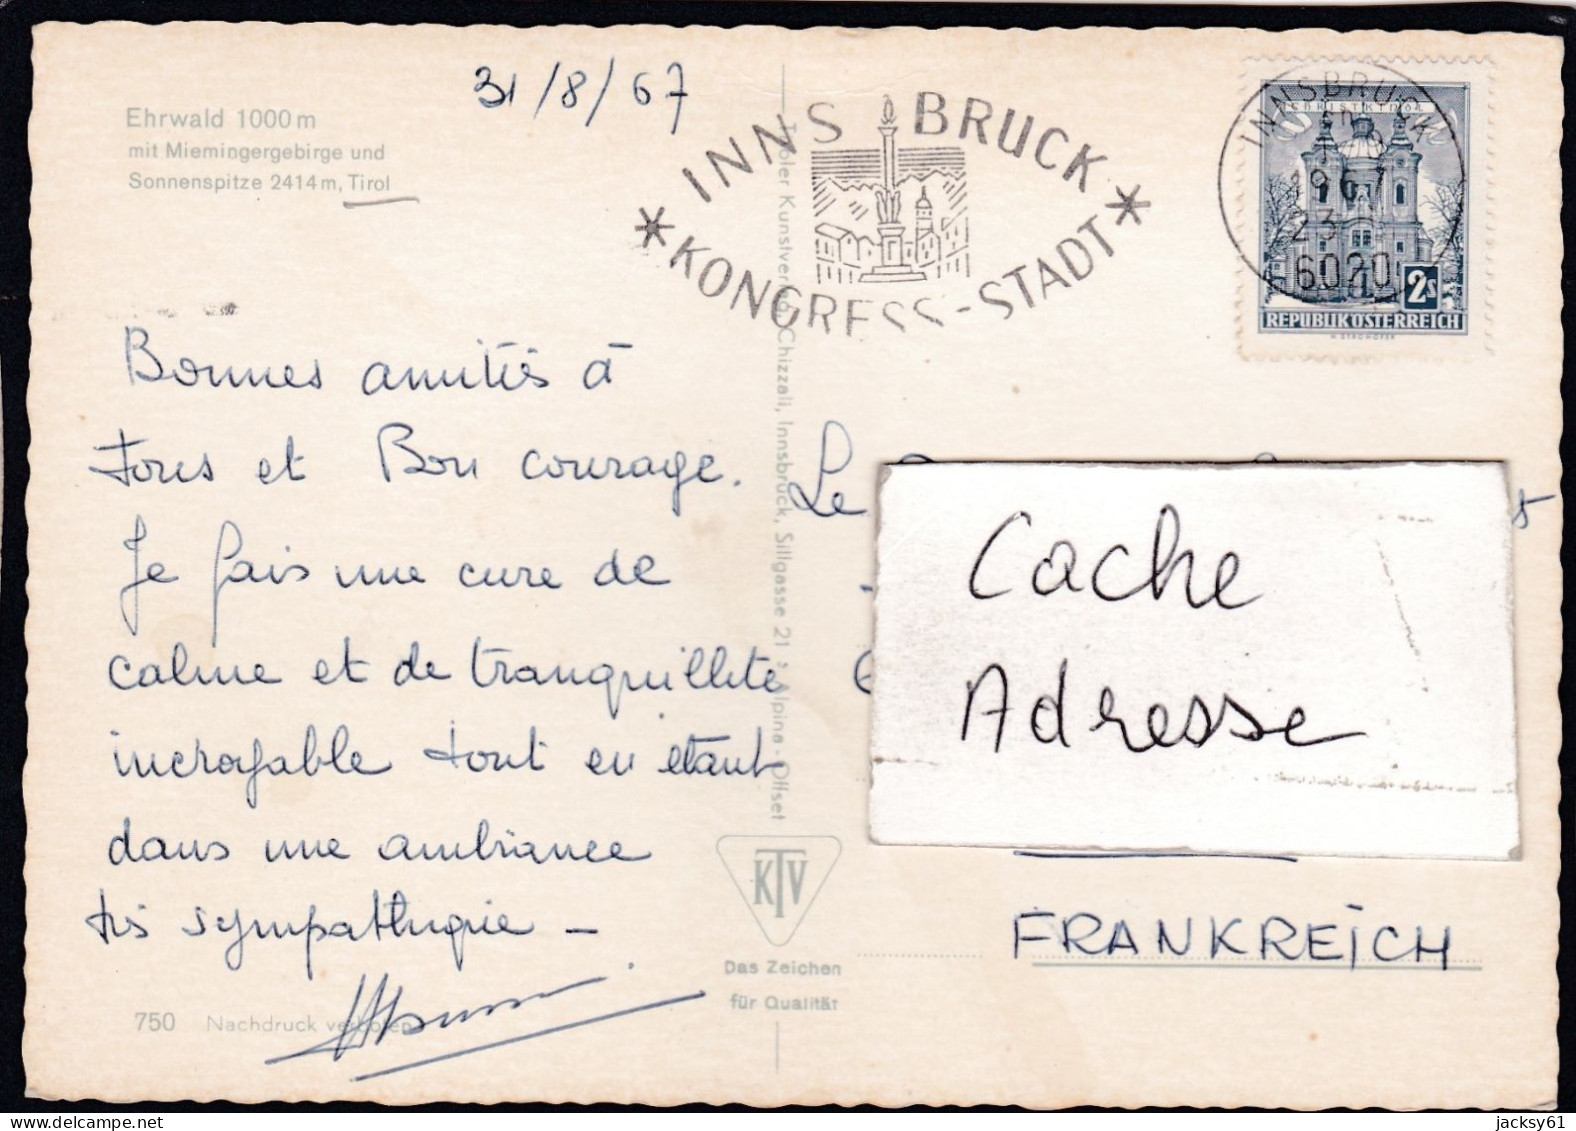 31/8/67
Ehrwald 1000 m
mit Miemingergebirge und
Sonnenspitze 2414 m, Tirol
INNSBRUCK
KONGRESS-STADT
INNSBRUCK
1967
23
6020
CHRISTKINDL
2s
REPUBLIK ÖSTERREICH
Bonnes amitiés à
tous et Bon courage.
Je fais une cure de
calme et de tranquillité
incroyable tout en étant
dans une ambiance
très sympathique -
Tiroler Kunstverlag Chizzali, Innsbruck, Sillgasse 21 : Alpina - Offset
Le
Cache
Adresse
FRANKREICH
KTV
Das Zeichen
für Qualität
750 Nachdruck verboten
jacksy61